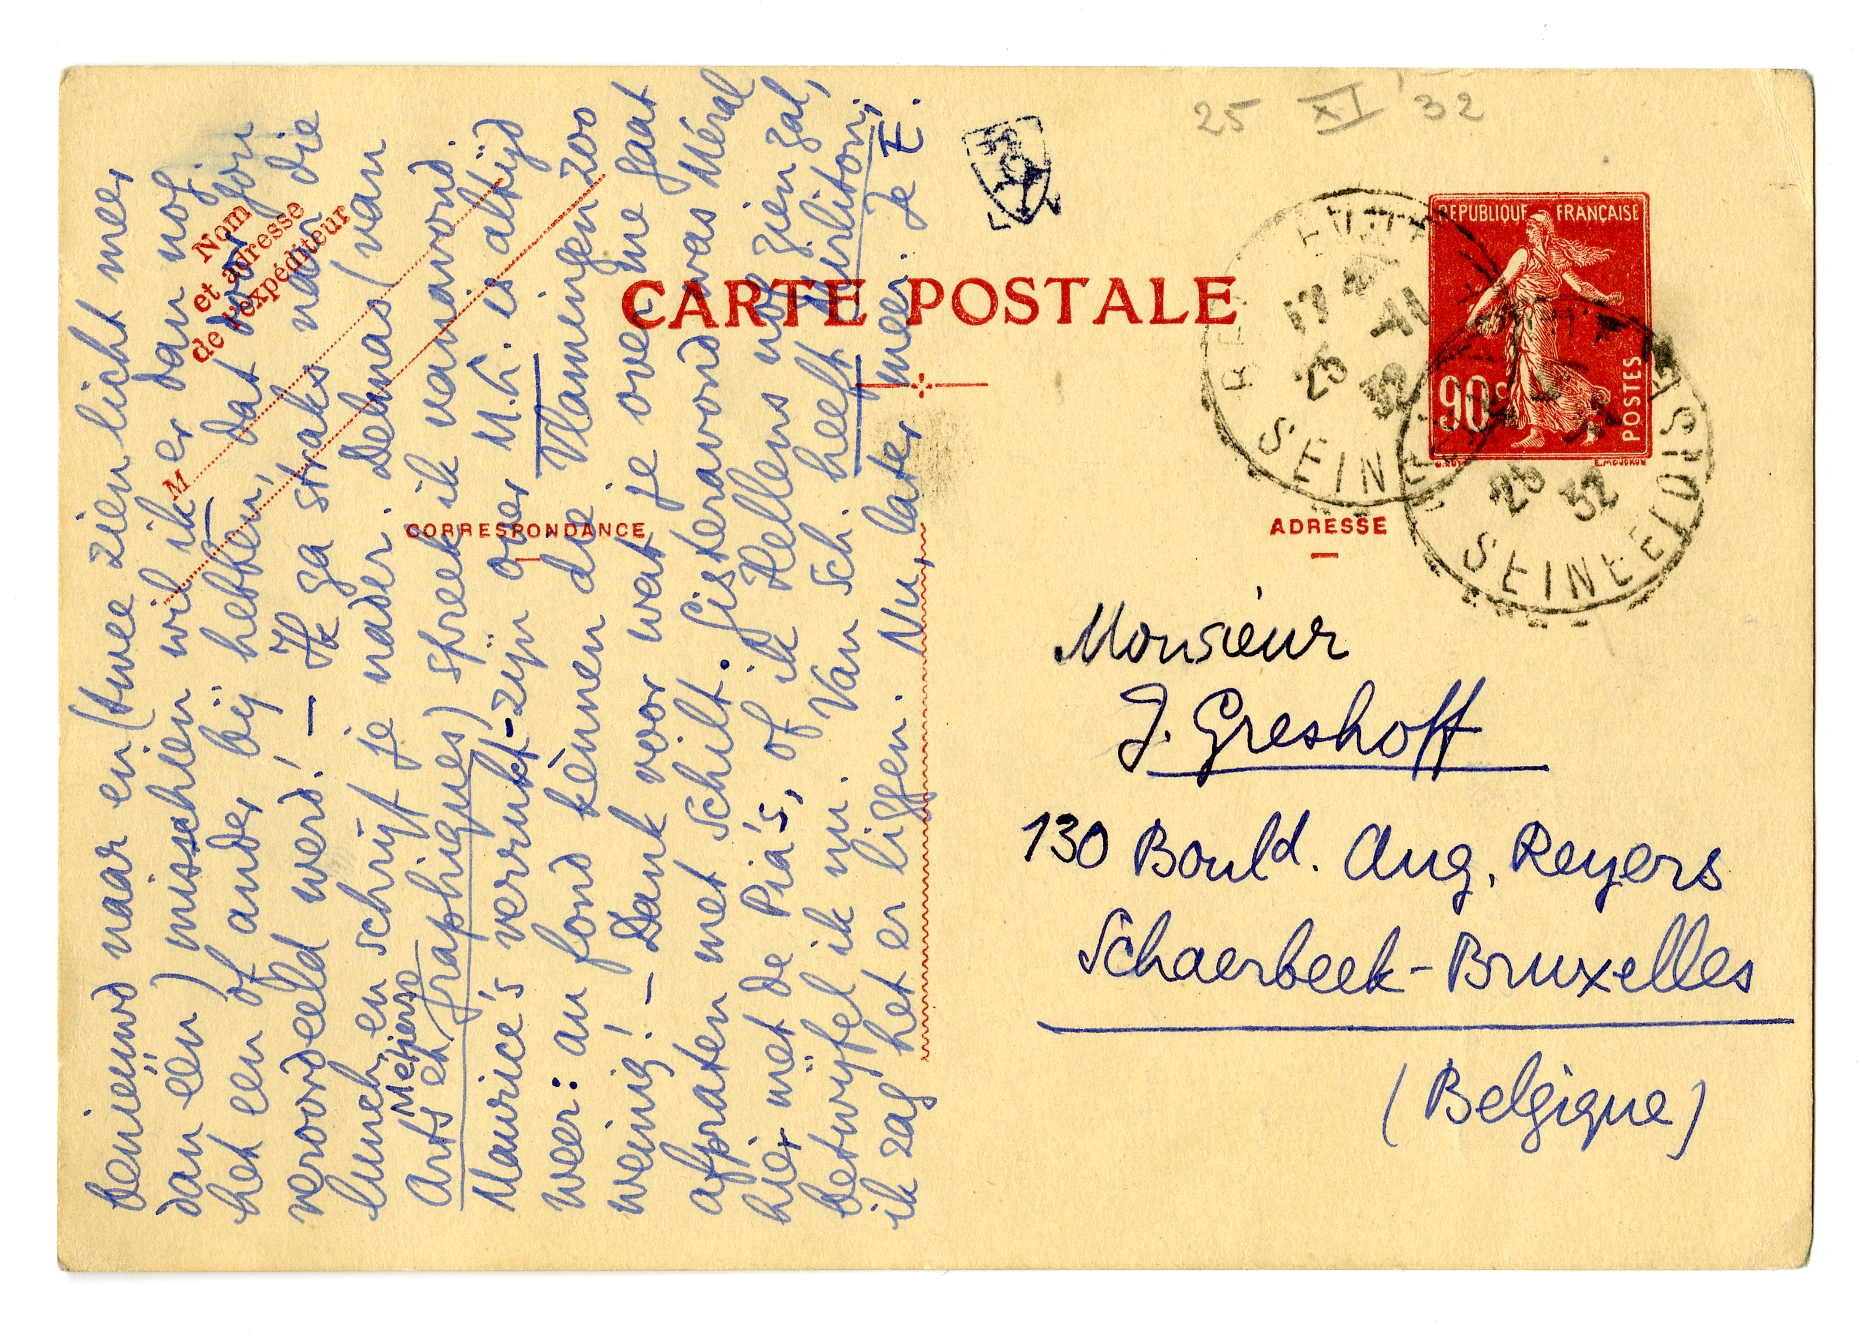 benieuwd naar en (twee zien licht meer
dan één) misschien wil ik er dan nog
het een of ander bij hebben, dat voor jou
veroordeeld werd! — Ik ga straks naar die
lunch en schrijf je nader. Delmas (van
Arts et Métiers graphiques) spreek ik vanavond.
Maurice's verrukt-zijn over M.G. is altijd
weer: au fond kènnen die Vlamingen zoo
weinig! — Dank voor wat je over me gaat
afpraten met Schilt. Gisteravond was Méral
hier met de Pia's, of ik Hellens nog zien zal,
betwijfel ik nu. Van Sch. heeft Querliton;
ik zag het er liggen. Nu, later meer. Je E.
Nom
et adresse
de l'expéditeur
M
CORRESPONDANCE
CARTE POSTALE
25 XI '32
REPUBLIQUE FRANÇAISE
90c
POSTES
SEINE
25
32
SEINE ET OISE
25
32
ADRESSE
Monsieur
J. Greshoff
130 Bould. Aug. Reyers
Schaerbeek - Bruxelles
(Belgique)